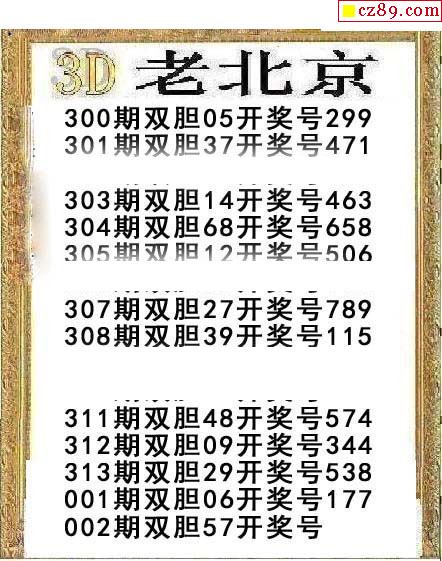 cz89.com
3D 老北京
300期双胆05开奖号299
301期双胆37开奖号471
303期双胆14开奖号463
304期双胆68开奖号658
305期双胆12开奖号506
307期双胆27开奖号789
308期双胆39开奖号115
311期双胆48开奖号574
312期双胆09开奖号344
313期双胆29开奖号538
001期双胆06开奖号177
002期双胆57开奖号